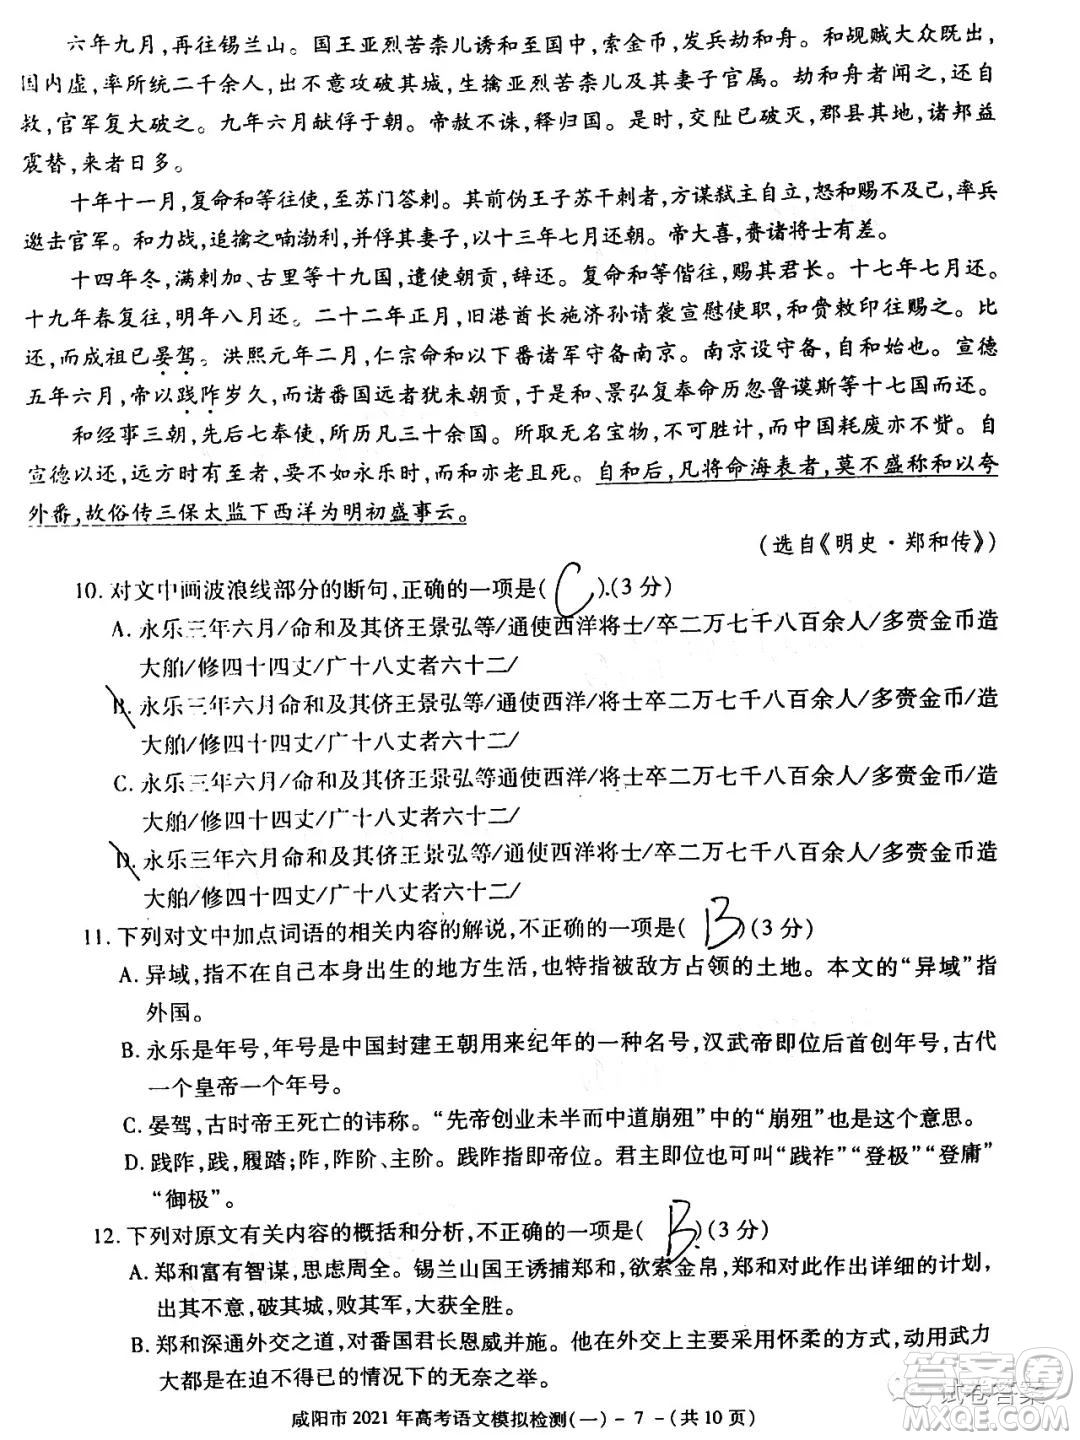 六年九月,再往锡兰山。国王亚烈苦柰儿诱和至国中,索金币,发兵劫和舟。和觇贼大众既出,
国内虚,率所统二千余人,出不意攻破其城,生擒亚烈苦柰儿及其妻子官属。劫和舟者闻之,还自
救,官军复大破之。九年六月献俘于朝。帝赦不诛,释归国。是时,交阯已破灭,郡县其地,诸邦益
震詟,来者日多。
十年十一月,复命和等往使,至苏门答剌。其前伪王子苏干剌者,方谋弑主自立,怒和赐不及己,率兵
邀击官军。和力战,追擒之喃渤利,并俘其妻子,以十三年七月还朝。帝大喜,赉诸将士有差。
十四年冬,满剌加、古里等十九国,遣使朝贡,辞还。复命和等偕往,赐其君长。十七年七月还。
十九年春复往,明年八月还。二十二年正月,旧港酋长施济孙请袭宣慰使职,和赍敕印往赐之。比
还,而成祖已晏驾。洪熙元年二月,仁宗命和以下番诸军守备南京。南京设守备,自和始也。宣德
五年六月,帝以践阼岁久,而诸番国远者犹未朝贡,于是和、景弘复奉命历忽鲁谟斯等十七国而还。
和经事三朝,先后七奉使,所历凡三十余国。所取无名宝物,不可胜计,而中国耗废亦不赀。自
宣德以还,远方时有至者,要不如永乐时,而和亦老且死。自和后,凡将命海表者,莫不盛称和以夸
外番,故俗传三保太监下西洋为明初盛事云。
(选自《明史·郑和传》)
10.对文中画波浪线部分的断句,正确的一项是( C ).(3 分)
A. 永乐三年六月/命和及其侪王景弘等/通使西洋将士/卒二万七千八百余人/多赍金币造
大舶/修四十四丈/广十八丈者六十二/
B. 永乐三年六月命和及其侪王景弘等/通使西洋/将士卒二万七千八百余人/多赍金币/造
大舶/修四十四丈/广十八丈者六十二/
C. 永乐三年六月/命和及其侪王景弘等通使西洋/将士卒二万七千八百余人/多赍金币/造
大舶/修四十四丈/广十八丈者六十二/
D. 永乐三年六月命和及其侪王景弘等/通使西洋将士/卒二万七千八百余人/多赍金币造
大舶/修四十四丈/广十八丈者六十二/
11.下列对文中加点词语的相关内容的解说,不正确的一项是( B )(3 分)
A. 异域,指不在自己本身出生的地方生活,也特指被敌方占领的土地。本文的“异域”指
外国。
B. 永乐是年号,年号是中国封建王朝用来纪年的一种名号,汉武帝即位后首创年号,古代
一个皇帝一个年号。
C. 晏驾,古时帝王死亡的讳称。“先帝创业未半而中道崩殂”中的“崩殂”也是这个意思。
D. 践阼,践,履踏;阼,阼阶、主阶。践阼指即帝位。君主即位也可叫“践祚”“登极”“登庸”
“御极”。
12.下列对原文有关内容的概括和分析,不正确的一项是( B )(3 分)
A. 郑和富有智谋,思虑周全。锡兰山国王诱捕郑和,欲索金帛,郑和对此作出详细的计划,
出其不意,破其城,败其军,大获全胜。
B. 郑和深通外交之道,对番国君长恩威并施。他在外交上主要采用怀柔的方式,动用武力
大都是在迫不得已的情况下的无奈之举。
咸阳市 2021 年高考语文模拟检测(一)－7－(共 10 页)
答案圈
试卷答案